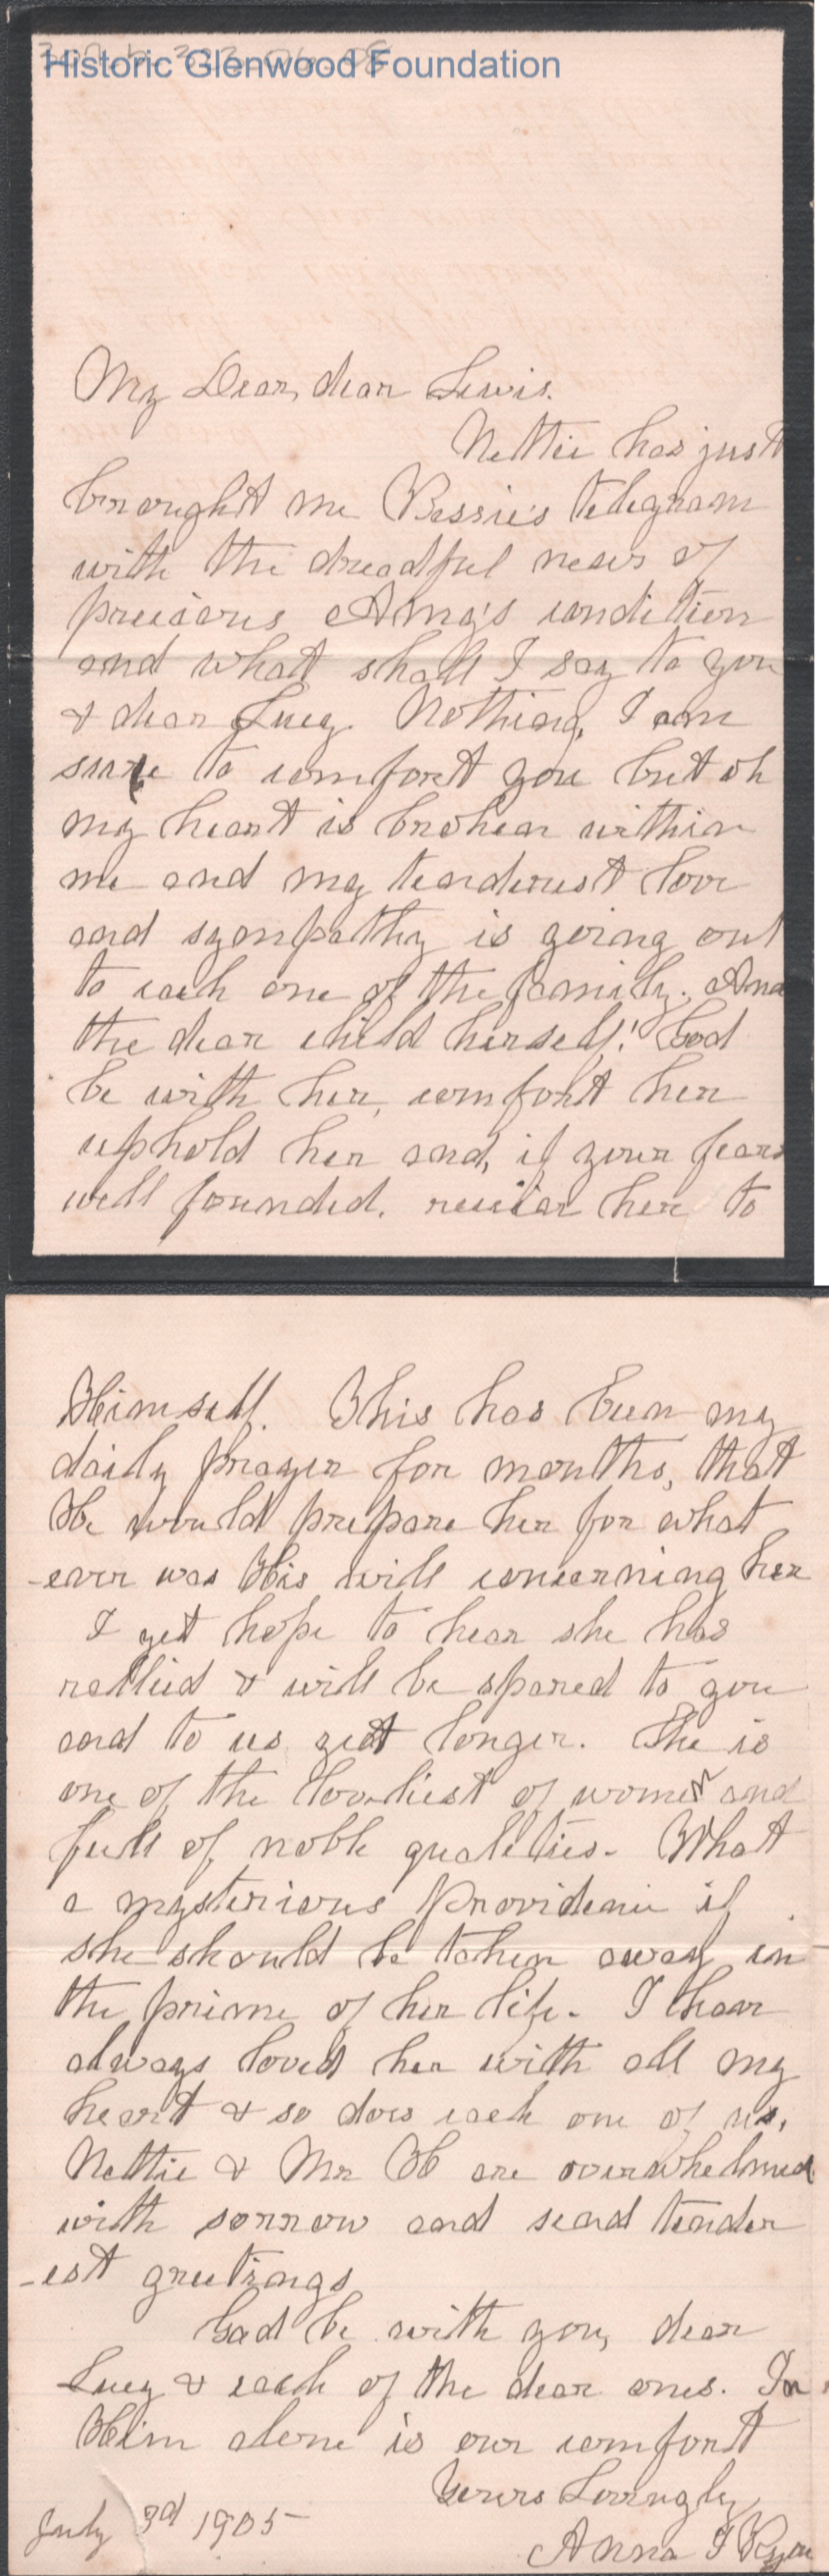 Historic Glenwood Foundation
My Dear, dear Lewis.
Nettie has just
brought me Bessie's telegram
with the dreadful news of
precious Amy's condition
and what shall I say to you
& dear Lucy. Nothing, I am
sure to comfort you but oh
my heart is broken within
me and my tenderest love
and sympathy is going out
to each one of the family. And
the dear child herself! God
be with her, comfort her
uphold her and, if your fears
well founded, receive her to
Himself. This has been my
daily prayer for months, that
He would prepare her for what
-ever was His will concerning her
I yet hope to hear she has
rallied & will be spared to you
and to us yet longer. She is
one of the loveliest of women and
full of noble qualities. What
a mysterious Providence if
she should be taken away in
the prime of her life. I have
always loved her with all my
heart & so does each one of us,
Nettie & Mr H are overwhelmed
with sorrow and send tender
-est greetings
God be with you, dear
Lucy & each of the dear ones. In
Him alone is our comfort
Yours Lovingly
July 3d 1905
Anna I